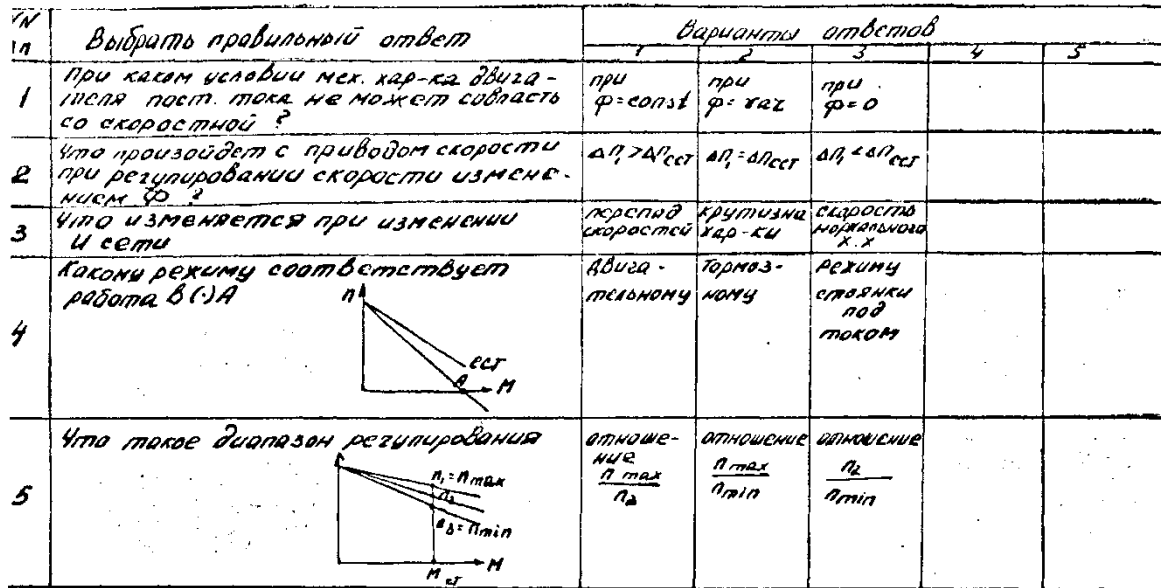 № п/п Выбрать правильный ответ Варианты ответов
1 2 3 4 5
1 При каком условии мех. хар-ка двига-
теля пост. тока не может совпасть
со скоростной ?
при φ=const
при φ=var
при φ=0
2 Что произойдет с приводом скорости
при регулировании скорости измене-
нием Ф ?
Δn₁>Δnест
Δn₁=Δnест
Δn₁<Δnест
3 Что изменяется при изменении
U сети
перепад
скоростей
крутизна
хар-ки
скорость
нормального
х.х
4 Какому режиму соответствует
работа в (·)A
n
ест
A
M
двига-
тельному
тормоз-
ному
режиму
стоянки
под
током
5 Что такое диапазон регулирования
n₁=n max
n₂
n₃=n min
M ст
M
отноше-
ние
n max
n₂
отношение
n max
n min
отношение
n₂
n min